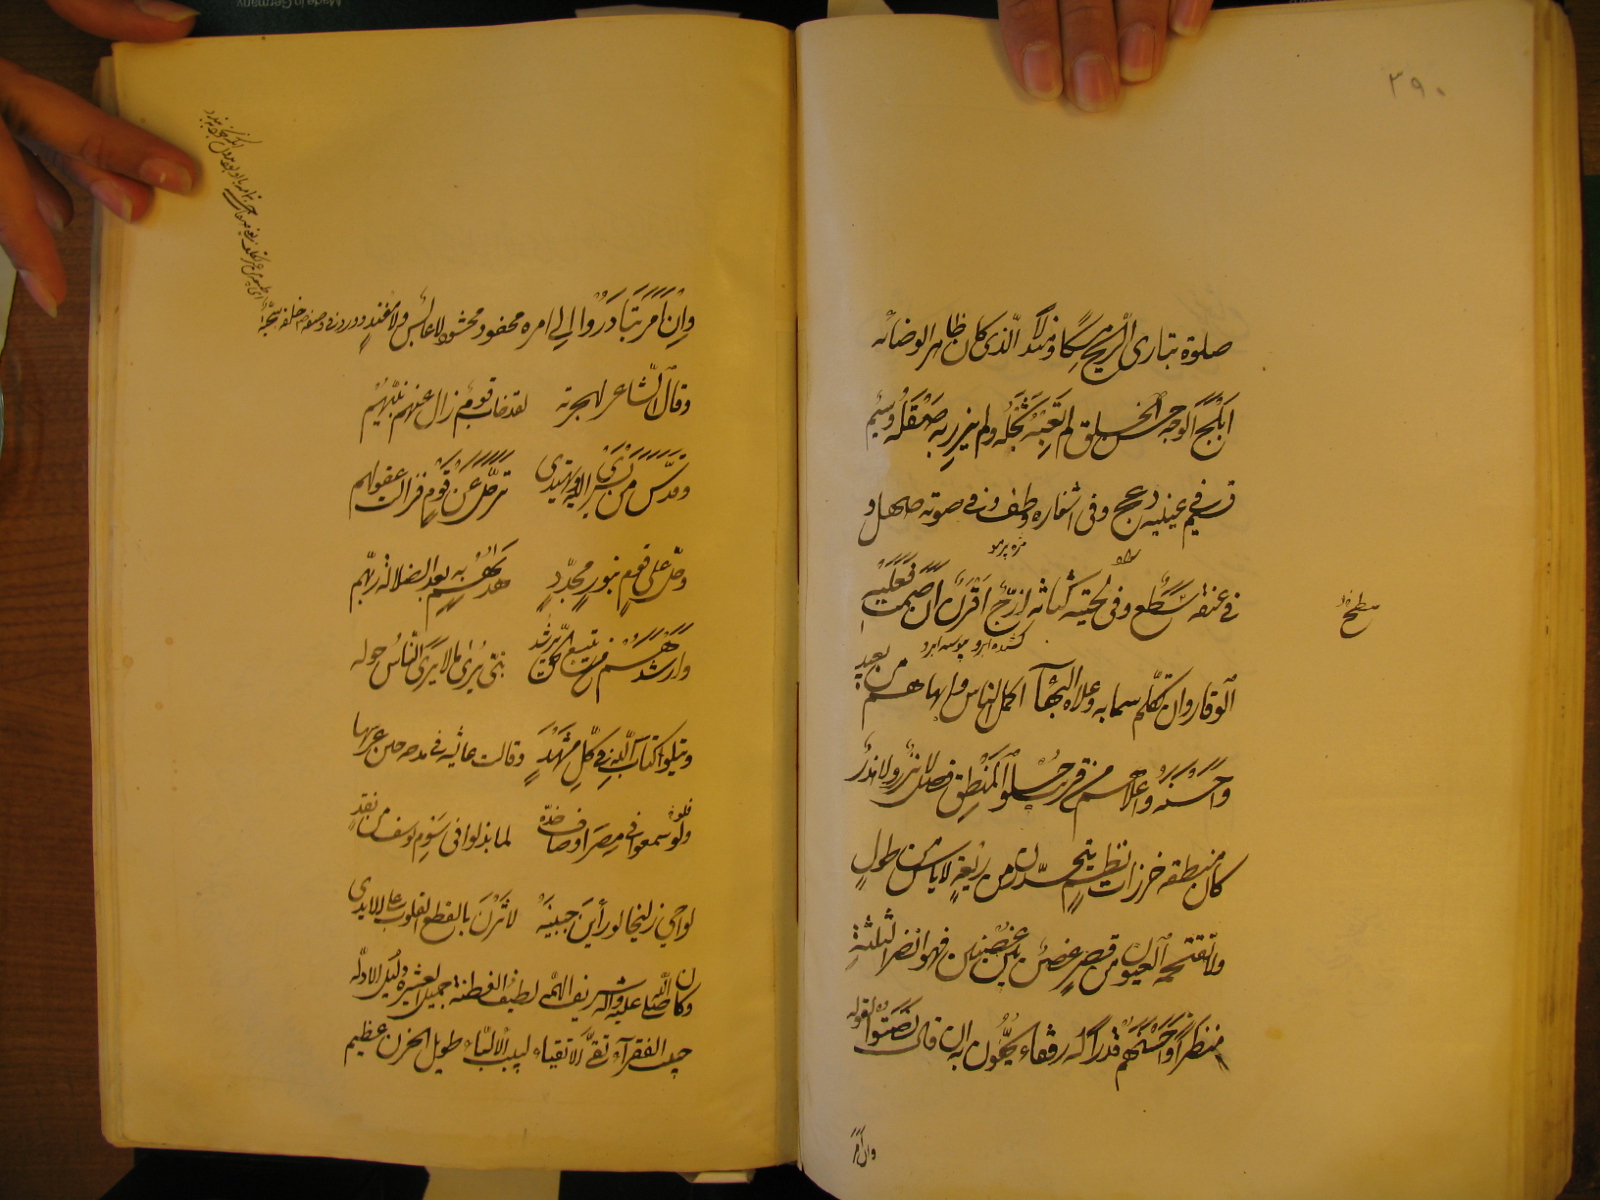 ٣٩٠
صلوة تباری الریح مسکا ومندلا الذی کان ظاهر الوضائه
ابلج الوجه حسن الخلق لم تعبه ثجله ولم یزر به صقله وسیم
قسیم فی عینیه دعج وفی اشفاره وطف وفی صوته صهل و
مژه پرمو
فی عنقه سطع وفی لحیته کثاثه ازج اقرن ان صمت فعلیه
سطح
کشیده ابرو پیوسته ابرو
الوقار وان تکلم سما به وعلاه البهآء اکمل الناس وابهاهم من بعید
واحسنه واعلاهم من قریب حلو المنطق فصل لا نزر ولا هذر
کأن منطقه خرزات نظم یتحدرن من ربعة لا یأس من طول
ولا تقتحمه العیون من قصر غصن بین غصنین فهو انضر الثلثة
منظرا واحسنهم قدرا له رفقاء یحفون به ان قال نصتوا لقوله
وان امر
وان امر تبادروا الی امره محفود محشود لا عابس ولا مفند
وقال الشاعر لهجرته لقد خاب قوم زال عنهم نبیهم
وقدس من یسری الیه ویهتدی ترحل عن قوم فزالت عقولهم
وحل علی قوم بنور مجدد هدیهم به بعد الضلالة ربهم
وارشدهم من یتبع الحق یرشد نبی یری ما لا یری الناس حوله
ویتلوا کتاب الله فی کل مشهد وقالت عائشه فی مدحه حین عرتها
ولو سمعوا فی مصر اوصاف خده لما بذلوا فی سوم یوسف من نقد
لواحی زلیخا لو رأین جبینه لاثرن بالقطع القلوب علی الایدی
وکان صلی الله علیه وآله شریف الهمة لطیف الفطنة جمیل العشیرة دلیل الادله
حبیب الفقرآء تقی الاتقیاء لبیب الالباء طویل الحزن عظیم